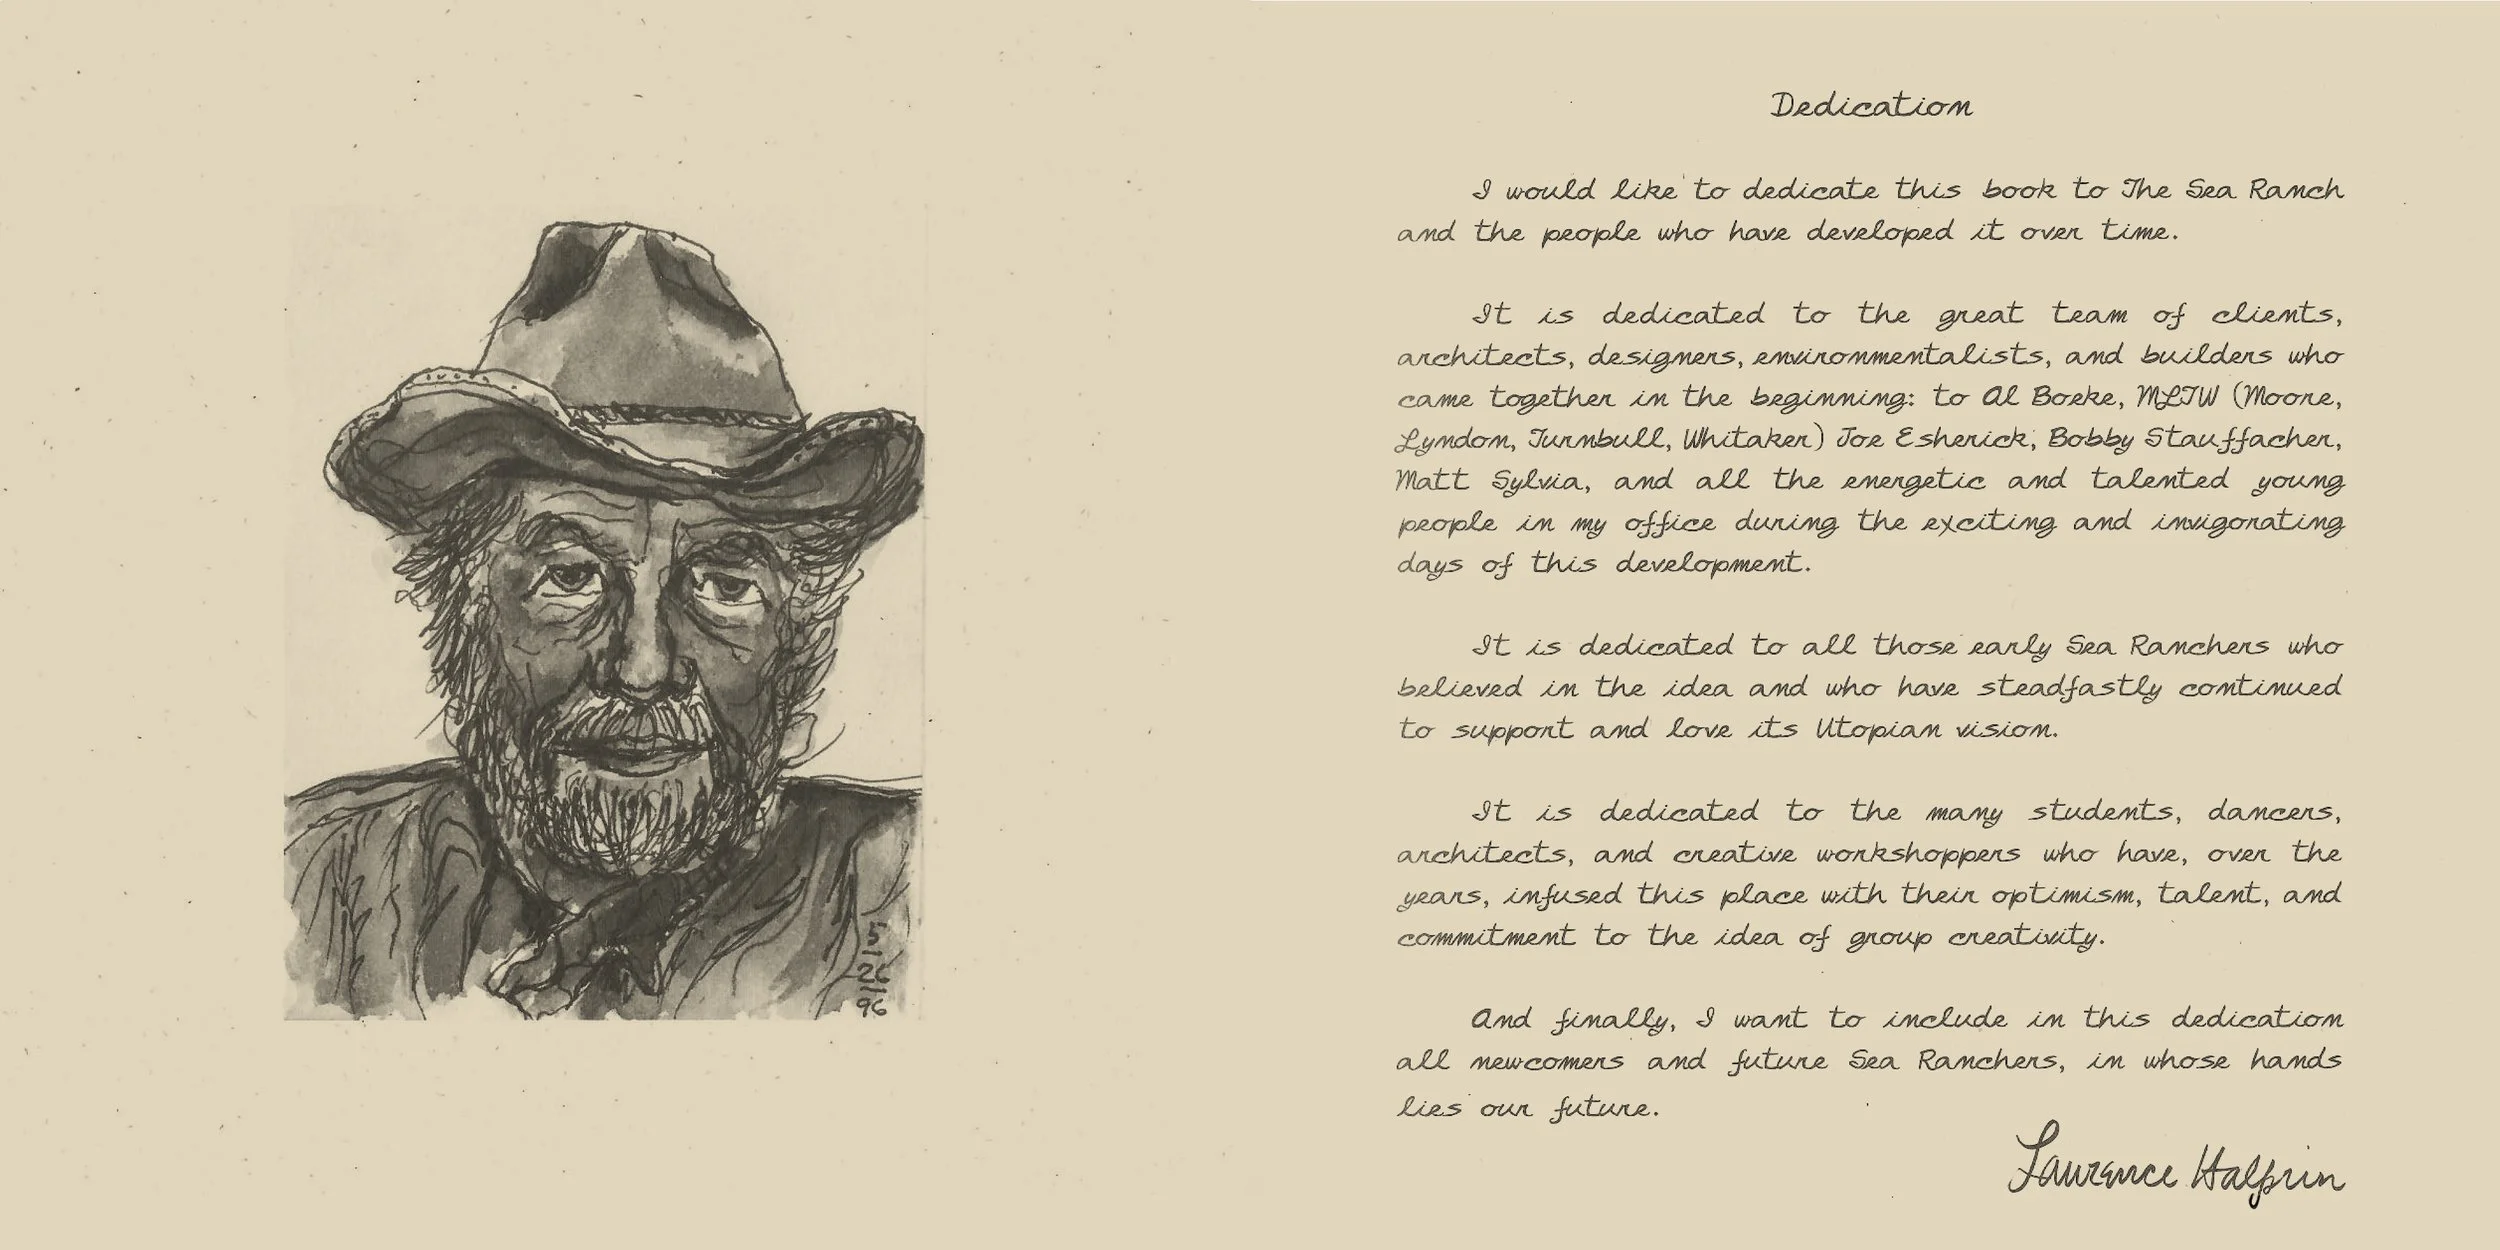 5
26
96
Dedication
I would like to dedicate this book to The Sea Ranch
and the people who have developed it over time.
It is dedicated to the great team of clients,
architects, designers, environmentalists, and builders who
came together in the beginning: to Al Boeke, MLTW (Moore,
Lyndon, Turnbull, Whitaker) Joe Esherick, Bobby Stauffacher,
Matt Sylvia, and all the energetic and talented young
people in my office during the exciting and invigorating
days of this development.
It is dedicated to all those early Sea Ranchers who
believed in the idea and who have steadfastly continued
to support and love its Utopian vision.
It is dedicated to the many students, dancers,
architects, and creative workshoppers who have, over the
years, infused this place with their optimism, talent, and
commitment to the idea of group creativity.
And finally, I want to include in this dedication
all newcomers and future Sea Ranchers, in whose hands
lies our future.
Lawrence Halprin